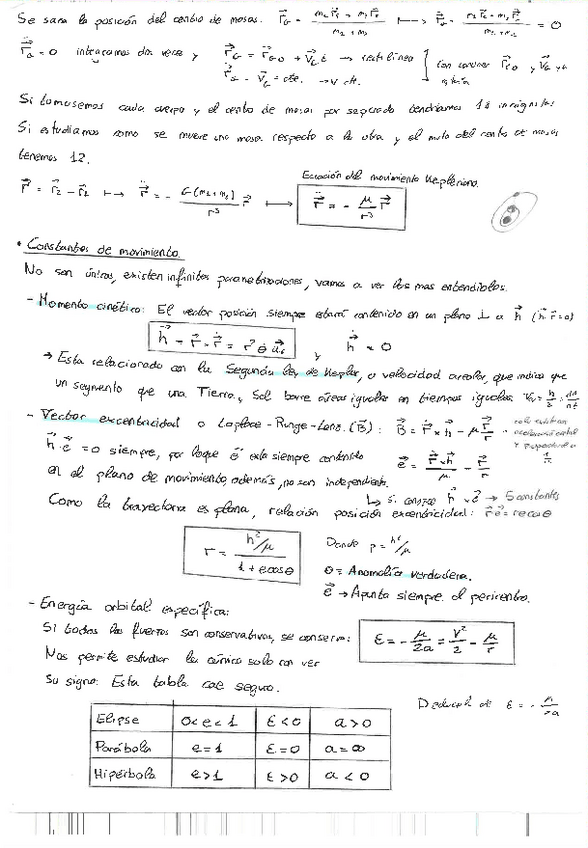 Se saca la posición del centro de masas. r⃗_G = (m₂r⃗₂ + m₁r⃗₁)/(m₂+m₁) ⟼ r̈⃗_G = (m₂r̈⃗₂ + m₁r̈⃗₁)/(m₂+m₁) = 0
r̈⃗_G = 0 integramos dos veces y r⃗_G = r⃗_G0 + v⃗_G t → recta línea
ṙ⃗_G = v⃗_G = cte. → v cte. } con conocer r⃗_G0 y v⃗_G
Si tomásemos cada cuerpo y el centro de masas por separado tendríamos 18 incógnitas
Si estudiamos como se mueve una masa respecto a la otra y el mvto del centro de masas
tenemos 12.
Ecuación del movimiento Kepleriano.
r⃗ = r⃗₂ - r⃗₁ ⟼ r̈⃗ = - G(m₂+m₁)/r³ r⃗ ⟼ r̈⃗ = - μ/r³ r⃗
• Constantes de movimiento.
No son únicas, existen infinitas parametrizaciones, vamos a ver las mas entendibles.
- Momento cinético: El vector posición siempre estará contenido en un plano ⊥ a h⃗ (h⃗·r⃗=0)
y ḣ⃗ = 0
→ Esta relacionado con la Segunda ley de Kepler, o velocidad areolar, que indica que
un segmento que una Tierra y Sol barre áreas iguales en tiempos iguales
- Vector excentricidad o Laplace-Runge-Lenz. (B⃗): B⃗ = ṙ⃗ × h⃗ - μ r⃗/r
h⃗·e⃗ = 0 siempre, por lo que e⃗ esta siempre contenido e⃗ = (ṙ⃗×h⃗)/μ - r⃗/r
en el plano de movimiento además, no son independientes.
↳ Si conozco h⃗ y e⃗ → 5 constantes
Como la trayectoria es plana, relación posición excentricidad: r⃗·e⃗ = r e cosθ
r = (h²/μ)/(1+e cosθ)
Donde p = h²/μ
θ = Anomalía verdadera.
e⃗ → Apunta siempre al pericentro.
- Energía orbital específica:
Si todas las fuerzas son conservativas, se conserva: ε = - μ/2a = v²/2 - μ/r
Nos permite estudiar la cónica solo con ver
Su signo: Esta tabla cae seguro.
Deducir de ε = - μ/2a
Elipse 0<e<1 ε<0 a>0
Parábola e=1 ε=0 a=∞
Hipérbola e>1 ε>0 a<0